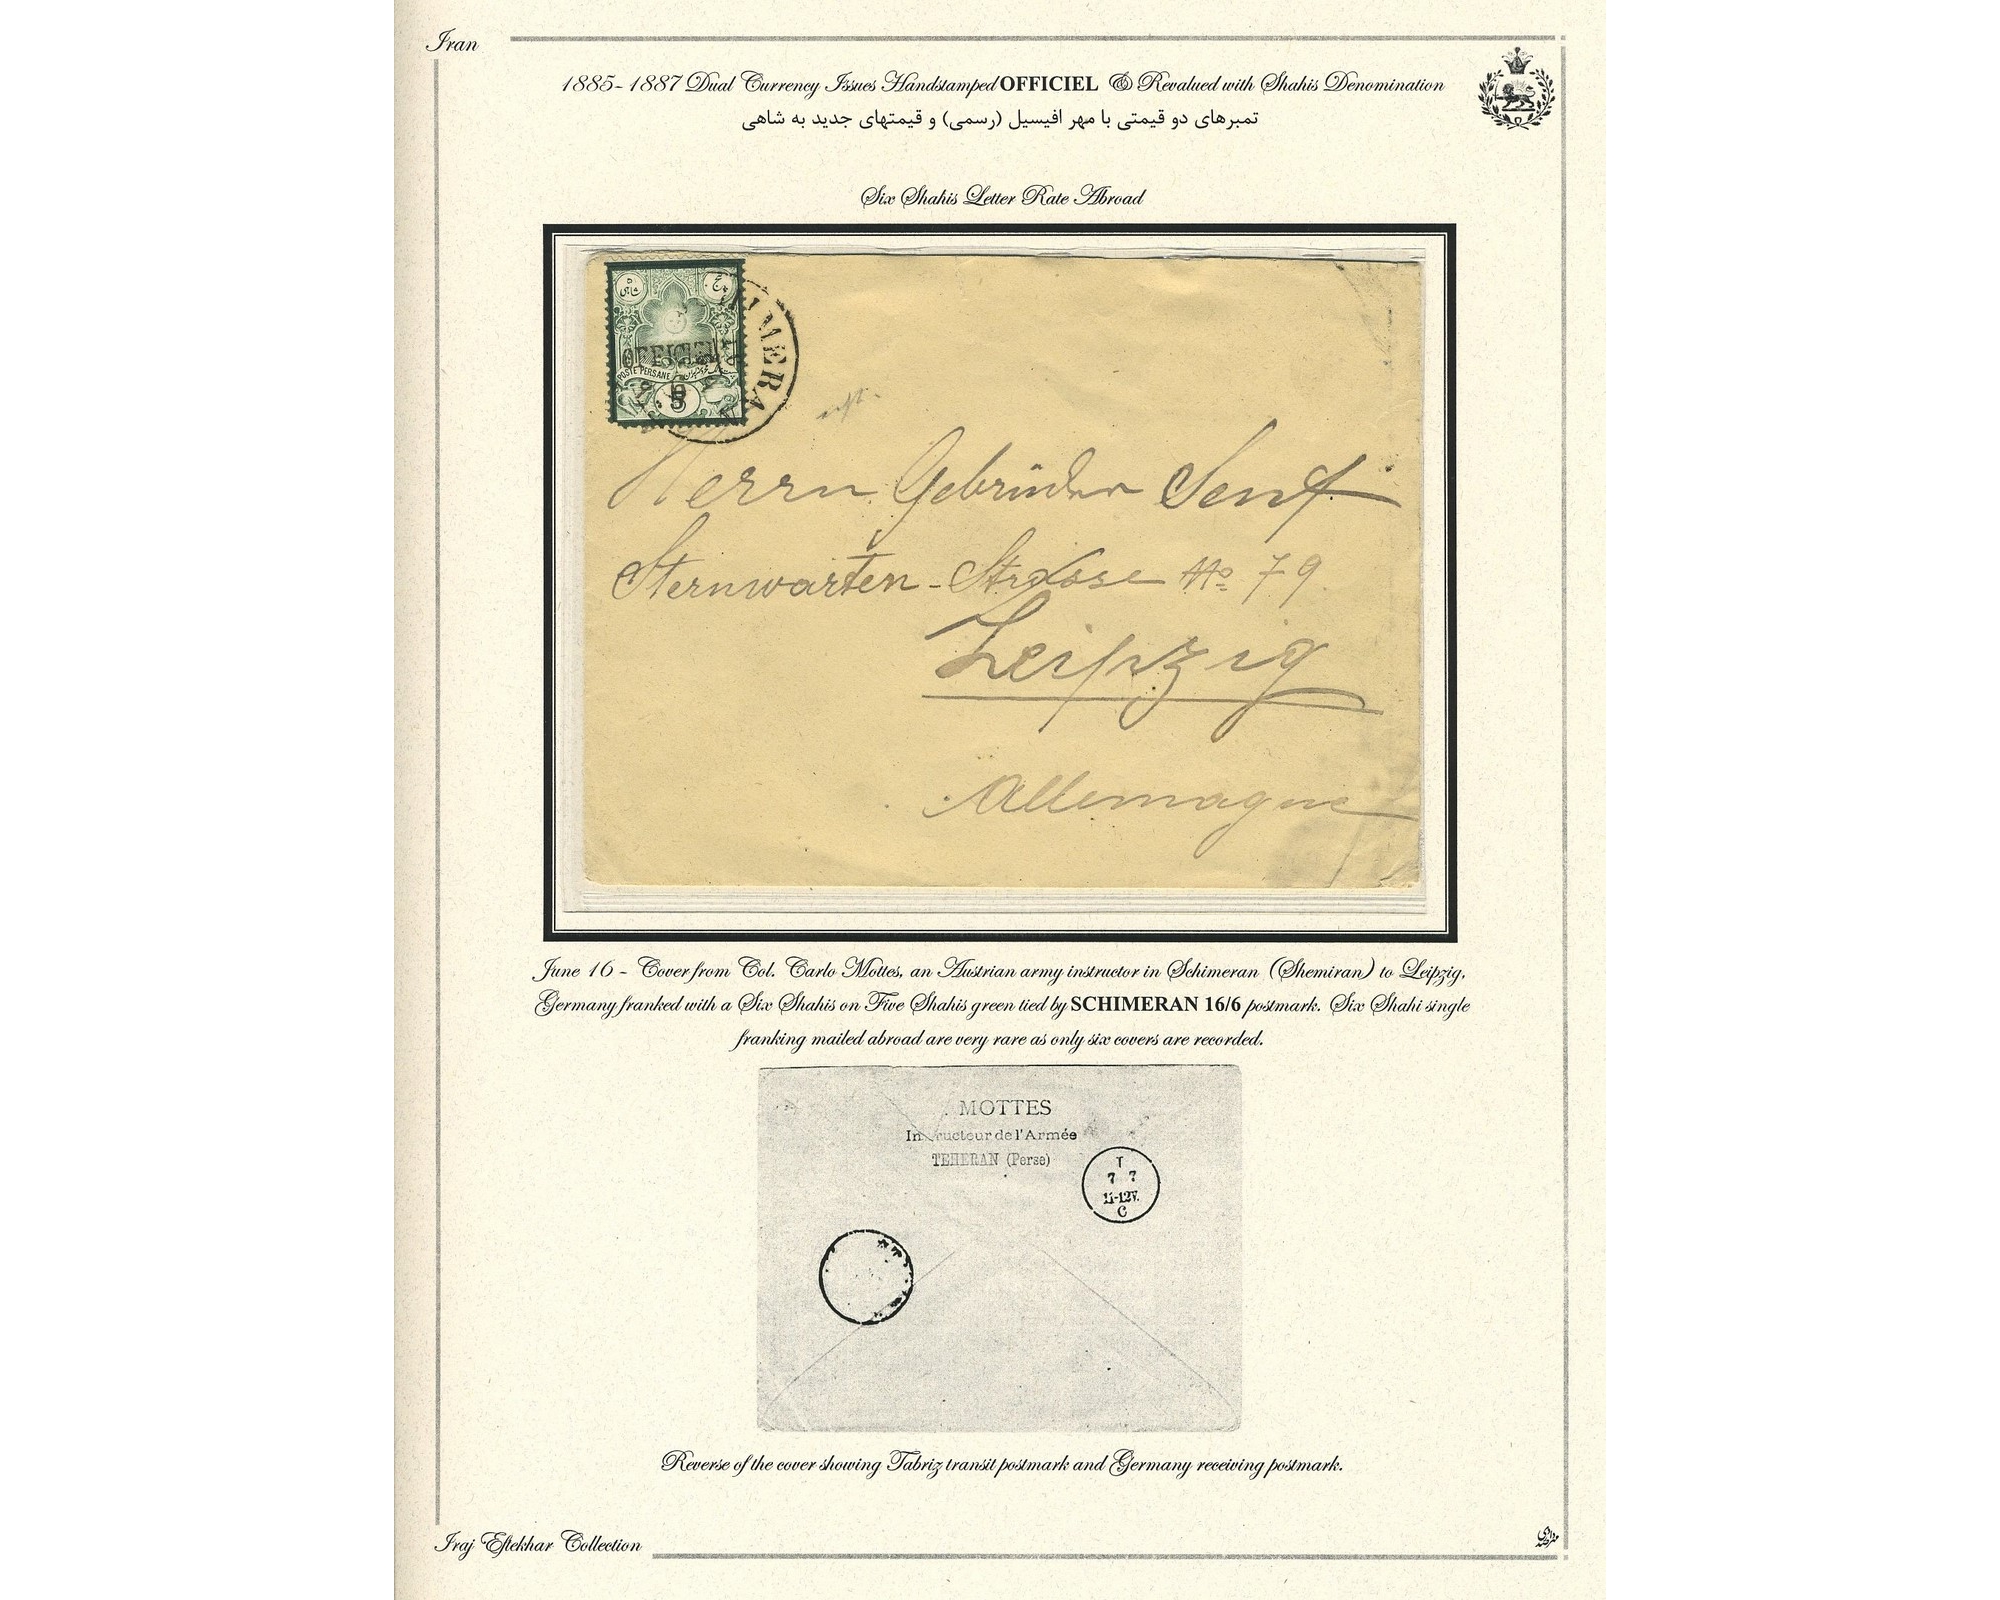 Iran
1885-1887 Dual Currency Issues Handstamped OFFICIEL & Revalued with Shahis Denomination
تمبرهای دو قیمتی با مهر افیسیل (رسمی) و قیمتهای جدید به شاهی
Six Shahis Letter Rate Abroad
OFFICIEL
POSTE PERSANE
Herrn Gebrüder Senf
Sternwarten-Strasse No 79.
Leipzig
Allemagne
June 16 - Cover from Col. Carlo Mottes, an Austrian army instructor in Schimeran (Shemiran) to Leipzig,
Germany franked with a Six Shahis on Five Shahis green tied by SCHIMERAN 16/6 postmark. Six Shahi single
franking mailed abroad are very rare as only six covers are recorded.
MOTTES
Instructeur de l'Armée
TEHERAN (Perse)
T
7 7
11-12V.
C
Reverse of the cover showing Tabriz transit postmark and Germany receiving postmark.
Iraj Eftekhar Collection